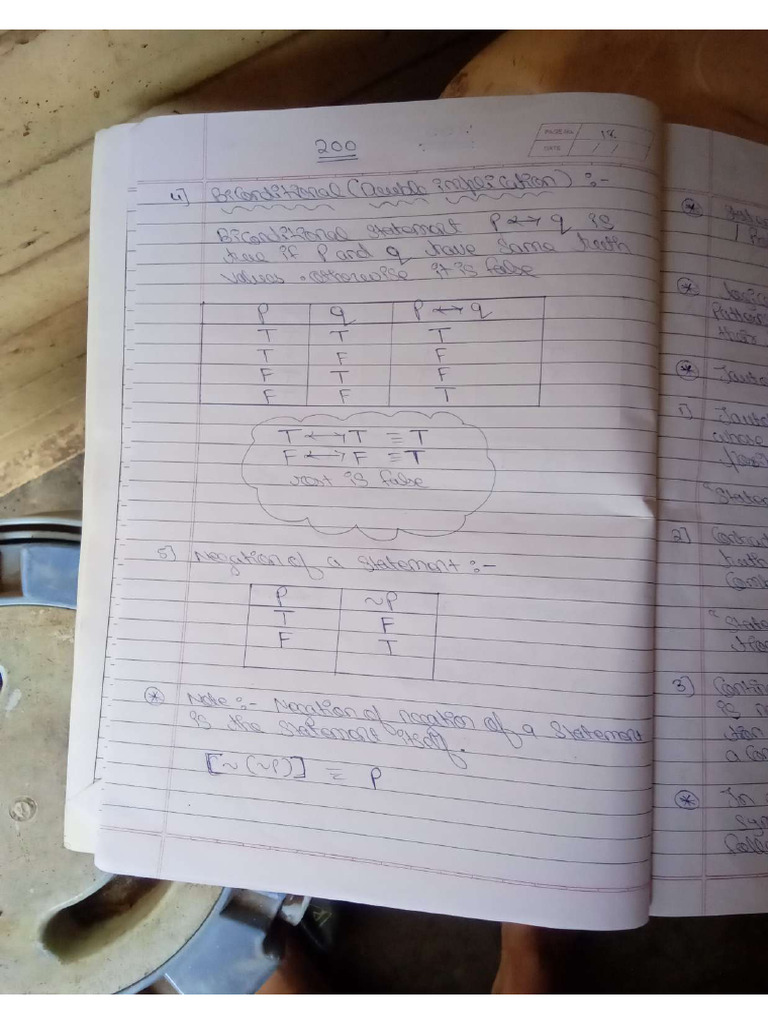 200
PAGE NO. 18
DATE / /
4] Biconditional (Double implication) :-
Biconditional statement P ↔ q is
true if P and q have same truth
values . otherwise it is false
P q P ↔ q
T T T
T F F
F T F
F F T
T ↔ T ≡ T
F ↔ F ≡ T
rest is false
5] Negation of a statement :-
P ~P
T F
F T
* Note :- Negation of negation of a statement
is the statement itself.
[~(~P)] ≡ P
*
*
*
1)
whose
2]
truth
3]
is
a con
* In
Sym